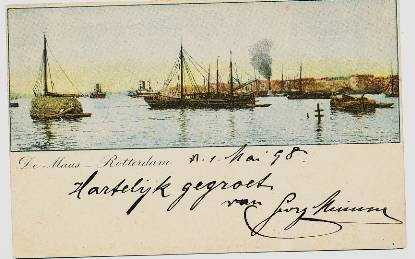 De Maas – Rotterdam
1 Mai 98.
Hartelijk gegroet
van Georg